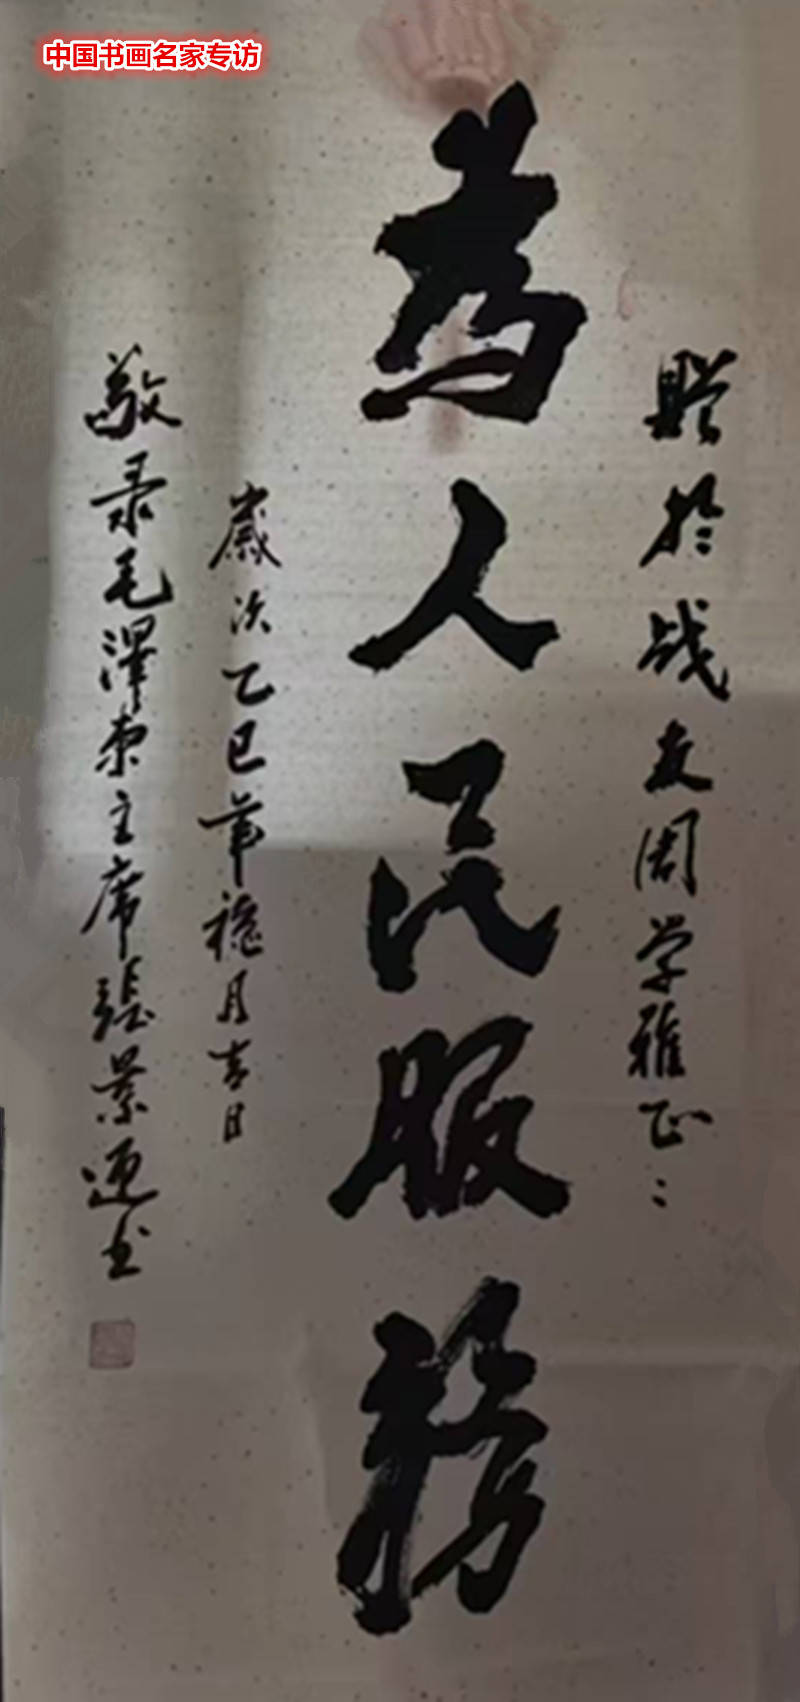 中国书画名家专访
赠於战友周学雅正
为人民服務
歲次乙巳年 月吉日
敬录毛澤东主席張景 书